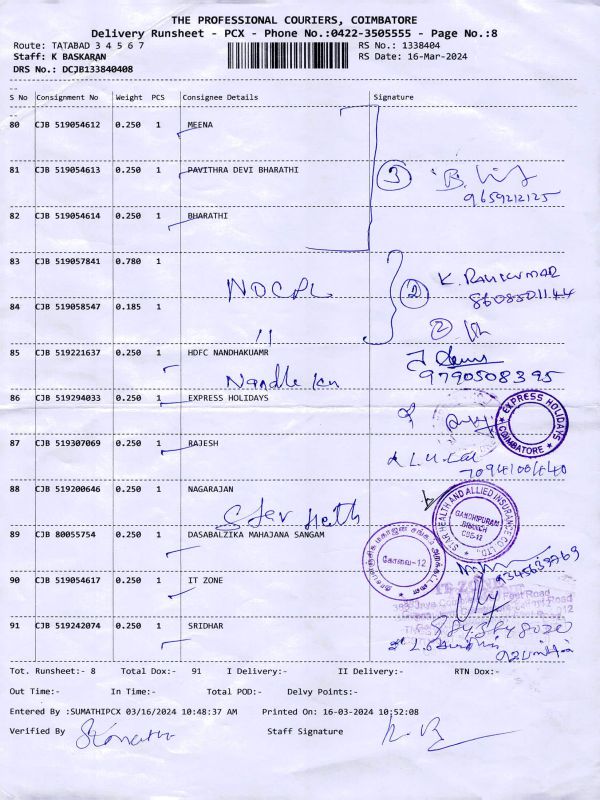 THE PROFESSIONAL COURIERS, COIMBATORE
Delivery Runsheet - PCX - Phone No.:0422-3505555 - Page No.:8
Route: TATABAD 3 4 5 6 7
RS No.: 1338404
Staff: K BASKARAN
RS Date: 16-Mar-2024
DRS No.: DCJB133840408
S No Consignment No Weight PCS Consignee Details Signature
80 CJB 519054612 0.250 1 MEENA
81 CJB 519054613 0.250 1 PAVITHRA DEVI BHARATHI
3
9659212125
82 CJB 519054614 0.250 1 BHARATHI
83 CJB 519057841 0.780 1
NDCPL
2
K. RAVIKUMAR
8608501144
84 CJB 519058547 0.185 1
"
2
85 CJB 519221637 0.250 1 HDFC NANDHAKUAMR
9790508395
86 CJB 519294033 0.250 1 EXPRESS HOLIDAYS
EXPRESS HOLIDAYS
COIMBATORE
87 CJB 519307069 0.250 1 RAJESH
88 CJB 519200646 0.250 1 NAGARAJAN
Star Health
STAR HEALTH AND ALLIED INSURANCE CO LTD.,
GANDHIPURAM
BRANCH
CBE-12
89 CJB 80055754 0.250 1 DASABALZIKA MAHAJANA SANGAM
கோவை-12
90 CJB 519054617 0.250 1 IT ZONE
IT-ZONE
91 CJB 519242074 0.250 1 SRIDHAR
Tot. Runsheet:- 8 Total Dox:- 91 I Delivery:- II Delivery:- RTN Dox:-
Out Time:- In Time:- Total POD:- Delvy Points:-
Entered By :SUMATHIPCX 03/16/2024 10:48:37 AM Printed On: 16-03-2024 10:52:08
Verified By Staff Signature